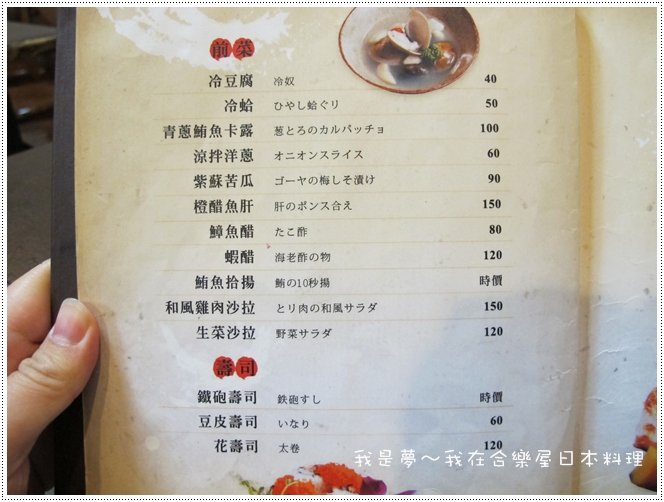 前菜
冷豆腐 冷奴 40
冷蛤 ひやし蛤ぐり 50
青蔥鮪魚卡露 葱とろのカルパッチョ 100
涼拌洋蔥 オニオンスライス 60
紫蘇苦瓜 ゴーヤの梅しそ漬け 90
橙醋魚肝 肝のポンス合え 150
鱆魚醋 たこ酢 80
蝦醋 海老酢の物 120
鮪魚拾揚 鮪の10秒揚 時價
和風雞肉沙拉 とリ肉の和風サラダ 150
生菜沙拉 野菜サラダ 120
壽司
鐵砲壽司 鉄砲すし 時價
豆皮壽司 いなり 60
花壽司 太卷 120
我是夢～我在合樂屋日本料理